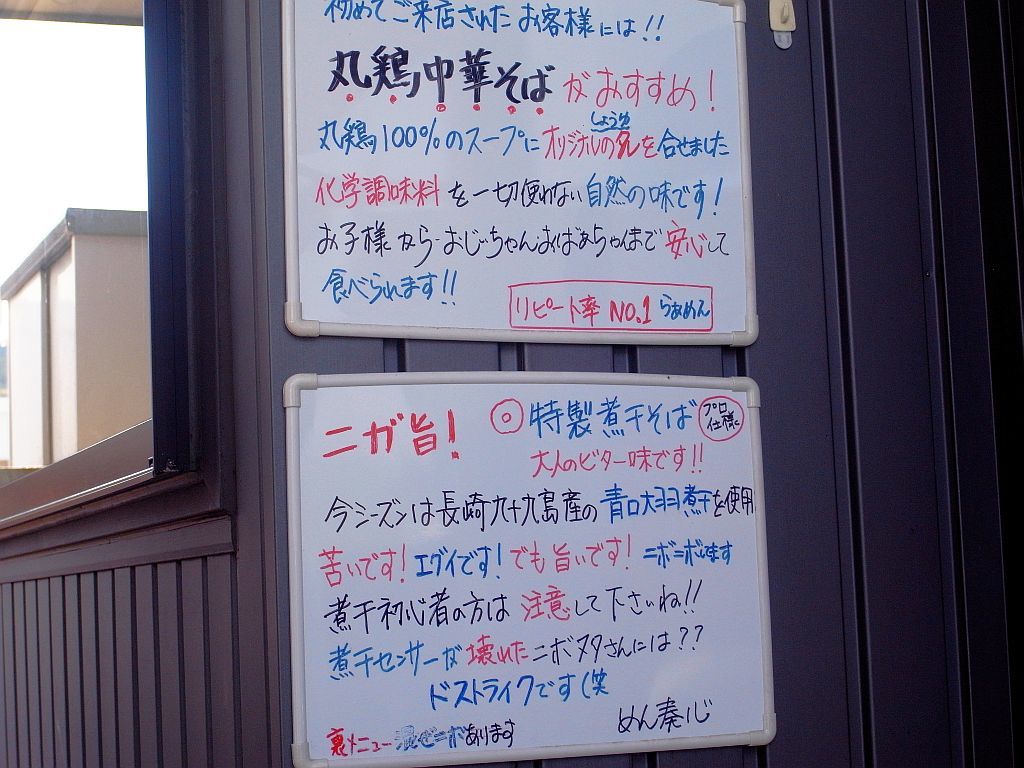 初めてご来店されたお客様には!!
丸鶏中華そばがおすすめ!
しょうゆ
丸鶏100%のスープにオリジナルのタレを合せました
化学調味料を一切使わない自然の味です!
お子様からおじーちゃんおばあちゃんまで安心して
食べられます!!
リピート率 NO.1 らぁめん
ニガ旨! ◎特製煮干そば プロ仕様に
大人のビター味です!!
今シーズンは長崎九十九島産の青口大羽煮干を使用
苦いです!エグイです!でも旨いです!ニボニボします
煮干初心者の方は注意して下さいね!!
煮干センサーが壊れたニボヲタさんには??
ドストライクです(笑
めん奏心
裏メニュー 混ぜニボあります